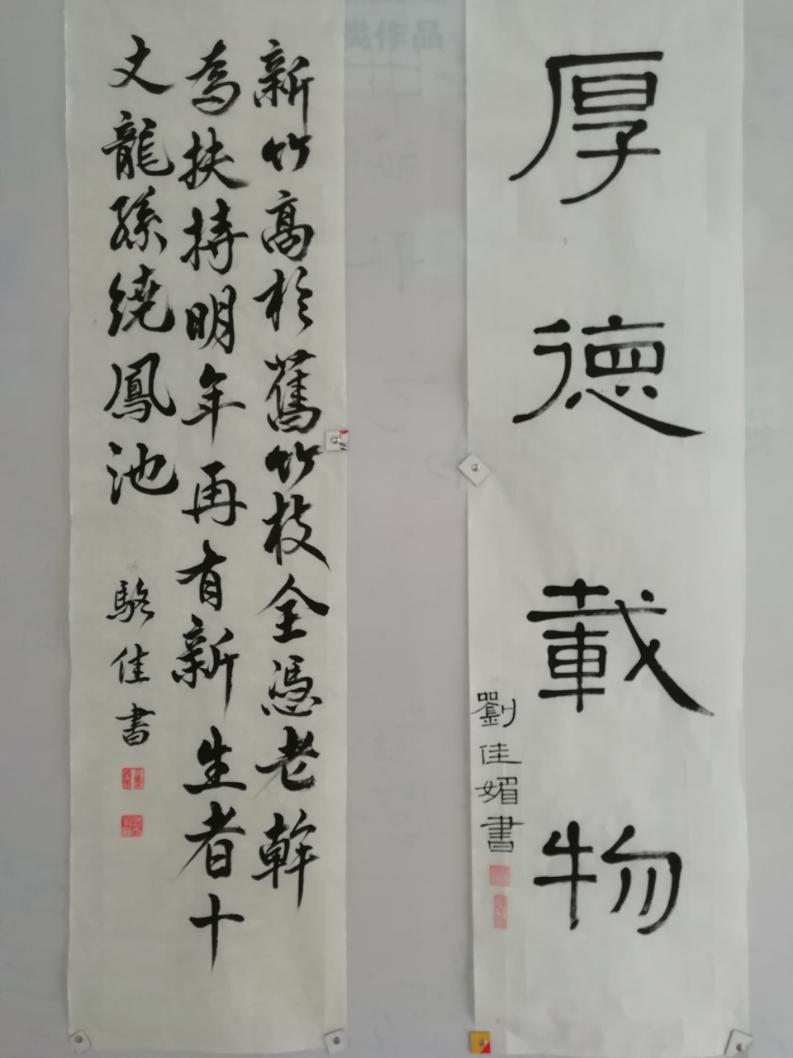 类作品
厚德載物
劉佳媚書
新竹高於舊竹枝全憑老幹
為扶持明年再有新生者十
丈龍孫繞鳳池
駱佳書